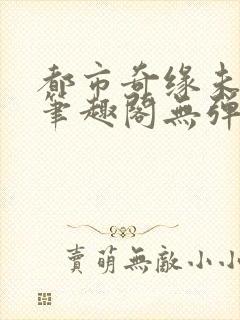 都市奇缘未
筆趣閣無彈
賣萌無敵小小